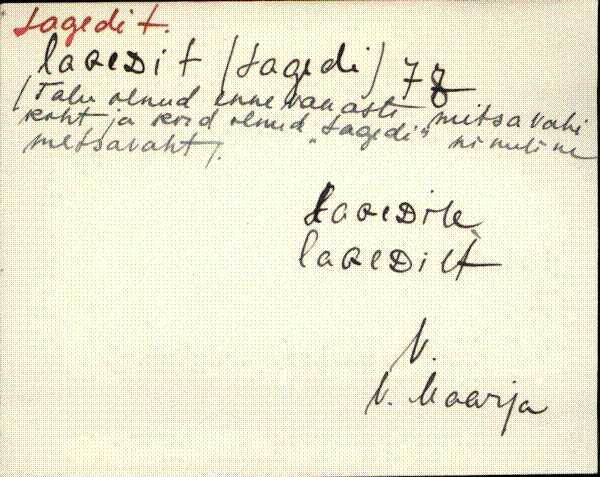 Lagedi t.
laɢeᴅi t (Lagedi) 78
(Talu olnud enne vanasti metsavahi
koht ja kord olnud "Lagedi" nimeline
metsavaht).
laɢeᴅile
laɢeᴅilt
V.
V. Maarja